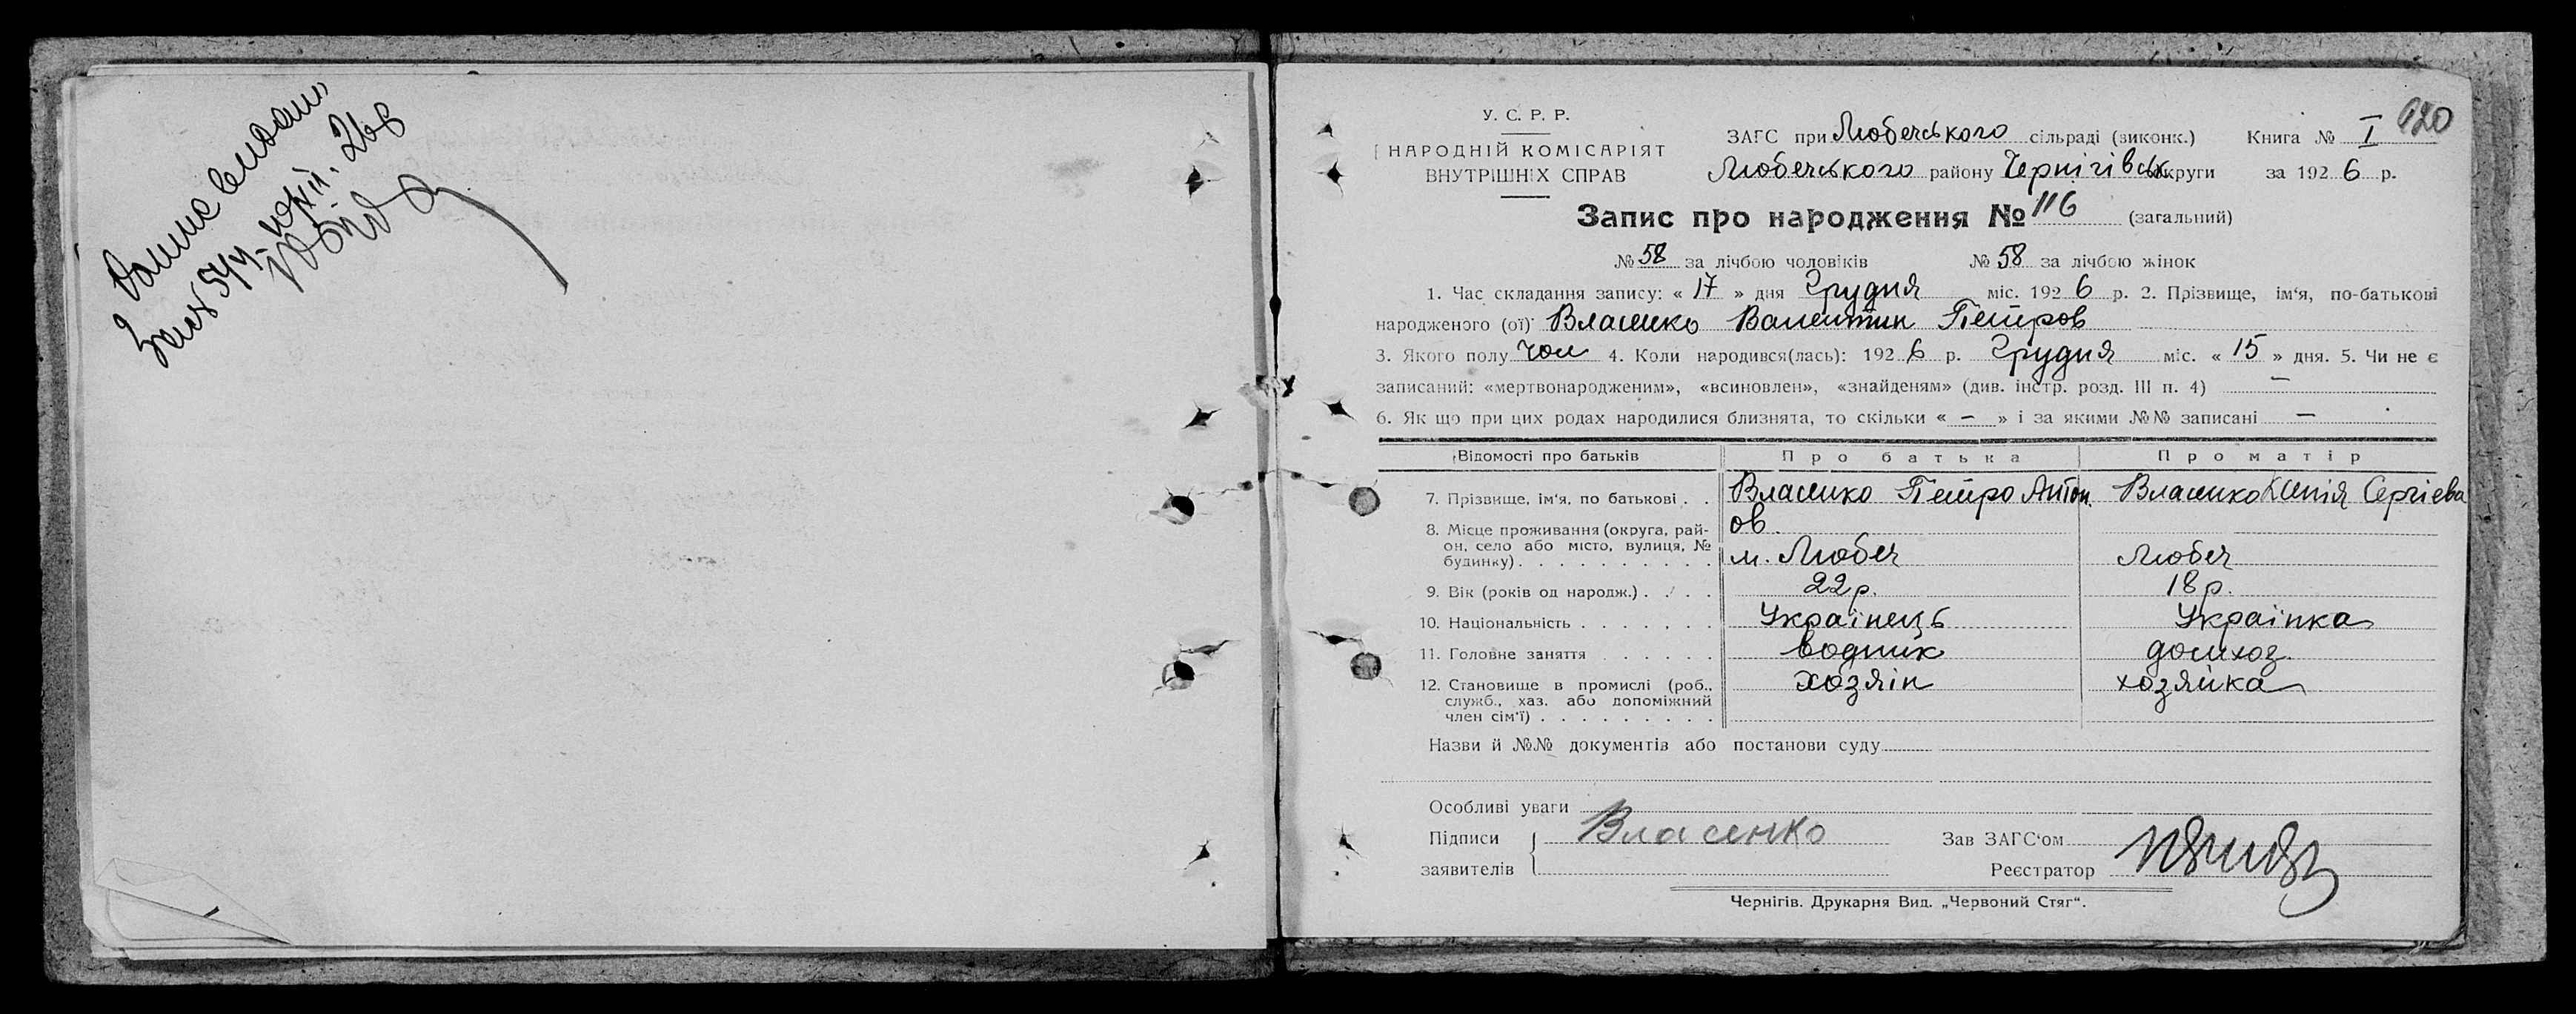 У. С. Р. Р.
НАРОДНІЙ КОМІСАРІЯТ
ВНУТРІШНІХ СПРАВ
ЗАГС при Любечського сільраді (виконк.) Книга № I 120
Любечського району Чернігівськ округи за 1926 р.
Запис про народження № 116 (загальний)
№ 58 за лічбою чоловіків № 58 за лічбою жінок
1. Час складання запису: « 17 » дня Грудня міс. 1926 р. 2. Прізвище, ім'я, по-батькові
народженого (ої) Власенко Валентин Петров
3. Якого полу чол 4. Коли народився(лась): 1926 р. Грудня міс. « 15 » дня. 5. Чи не є
записаний: «мертвонародженим», «всиновлен», «знайденям» (див. інстр. розд. III п. 4) —
6. Як що при цих родах народилися близнята, то скільки « — » і за якими №№ записані —
Відомості про батьків Про батька Про матір
7. Прізвище, ім'я, по батькові . . Власенко Петро Антон. Власенко Ксенія Сергієва
ов.
8. Місце проживання (округа, рай-
он, село або місто, вулиця, №
будинку) . . . . . . . . . . м. Любеч Любеч
9. Вік (років од народж.) . . . . 22 р. 18 р.
10. Національність . . . . . . . Українець Українка
11. Головне заняття . . . . . . водник домхоз.
12. Становище в промислі (роб., хозяін хозяйка
служб., хаз. або допоміжний
член сім'ї) . . . . . . . . .
Назви й №№ документів або постанови суду
Особливі уваги
Підписи Власенко Зав ЗАГС'ом
заявителів Реєстратор
Чернігів. Друкарня Вид. „Червоний Стяг“.